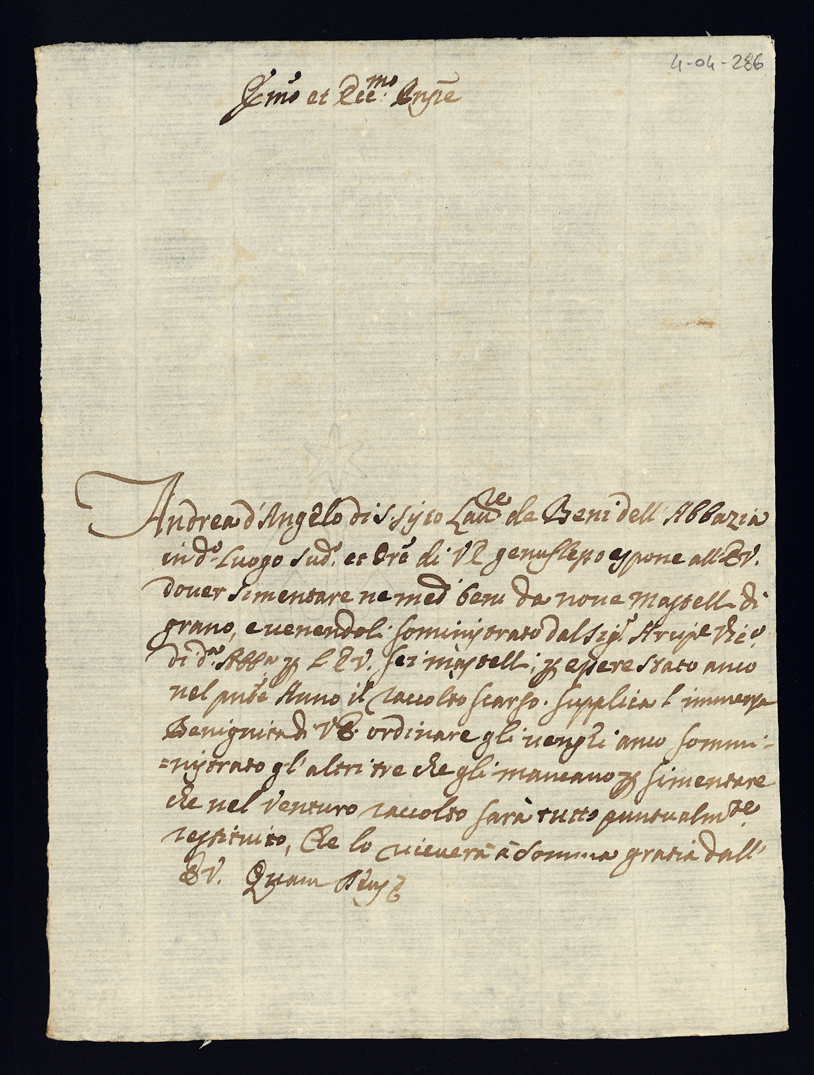 4-04-286
Em̃o et Rev:mo Prnpe
Andrea d'Angelo di S. Sisto Lau:re de Beni dell'Abbazia
in d:o Luogo sud:o et Ore di VE genuflesso espone all'EV.
dover simentare ne med:i beni da nove Mastelli di
grano, e venendoli sominjstrato dal Sig:r
di d:a Abba p L'EV. sei mastelli; p essere stato anco
nel pnte Anno il raccolto scarso. supplica l'immensa
Benignità di VE. ordinare gli venghi anco sommi-
=nistrato gl'altri tre che gli mancano p simentare
che nel venturo raccolto sarà tutto puntualm:te
restituito, Che lo riceverà à somma gratia dall'
EV. Quam Deus